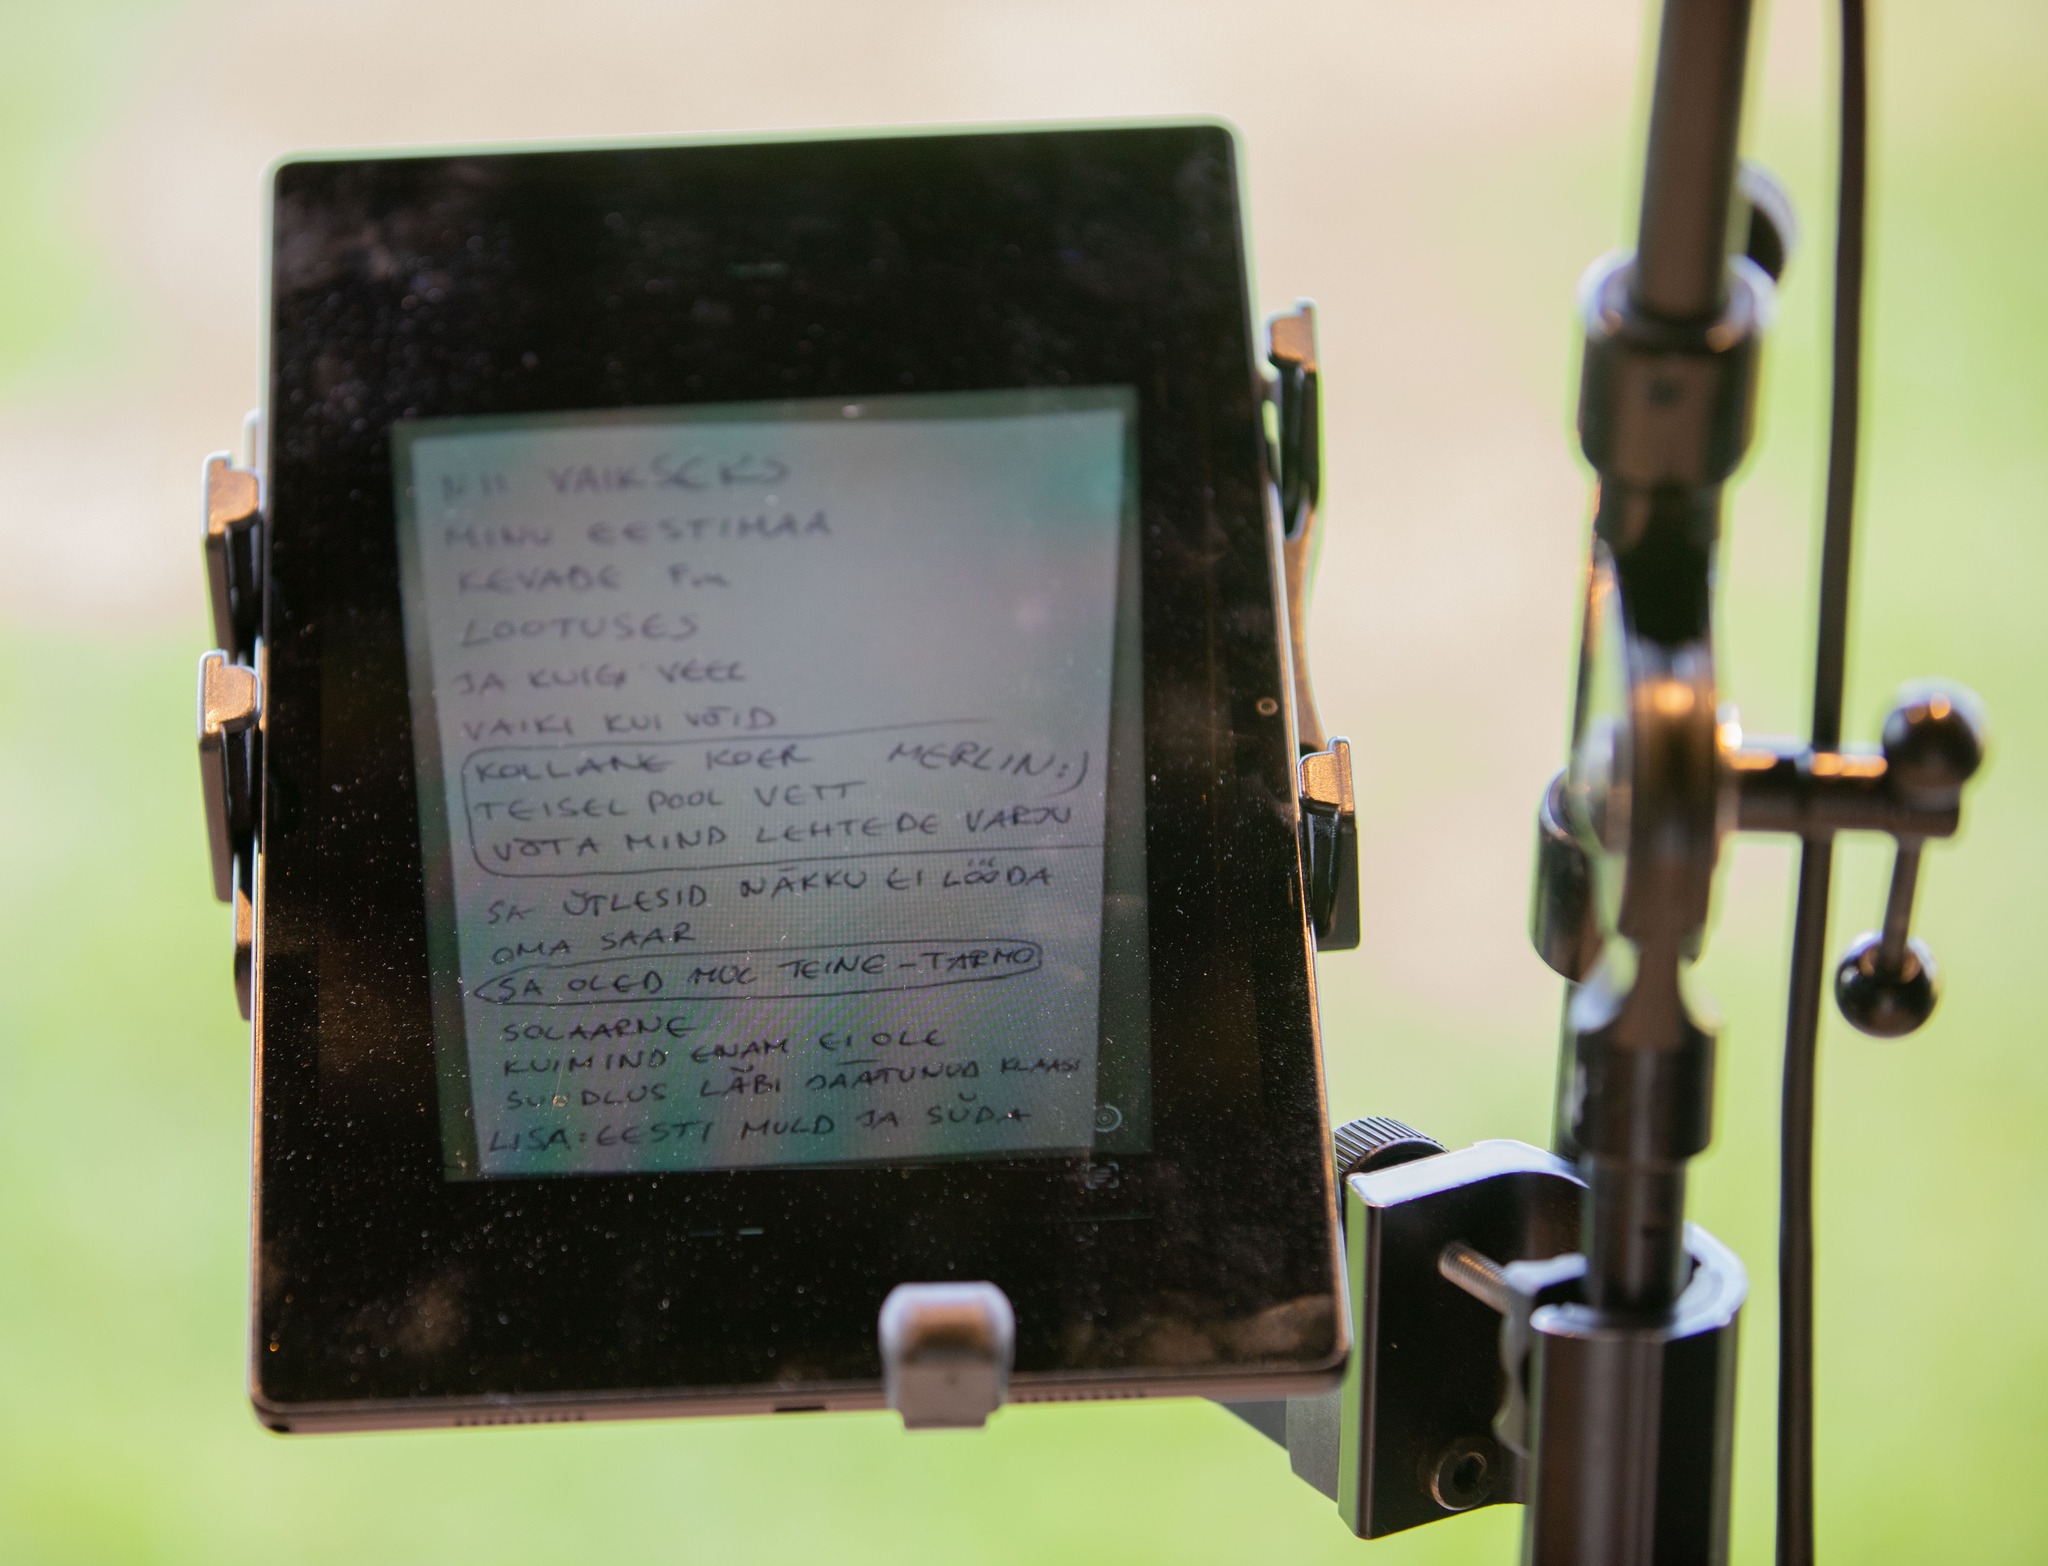 NII VAIKSEKS
MINU EESTIMAA
KEVADE Fm
LOOTUSES
JA KUIGI VEEL
VAIKI KUI VÕID
KOLLANE KOER MERLIN:)
TEISEL POOL VETT
VÕTA MIND LEHTEDE VARJU
SA ÜTLESID NÄKKU EI LÖÖDA
OMA SAAR
SA OLED MUL TEINE - TARMO
SOLAARNE
KUI MIND ENAM EI OLE
SUUDLUS LÄBI JÄÄTUNUD KLAASI
LISA: EESTI MULD JA SÜDA